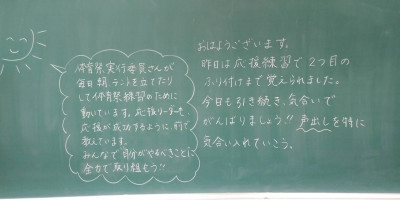 体育祭実行委員さんが
毎日朝、テントを立てたり
して体育祭練習のために
動いています。応援リーダーも、
応援が成功するように
教えています。
みんなで自分がやるべきことに
全力で取り組もう!!
おはようございます。
昨日は応援練習で2つ目の
ふり付けまで覚えられました。
今日も引き続き、気合いで
がんばりましょう!! 声出しを特に
気合い入れていこう。